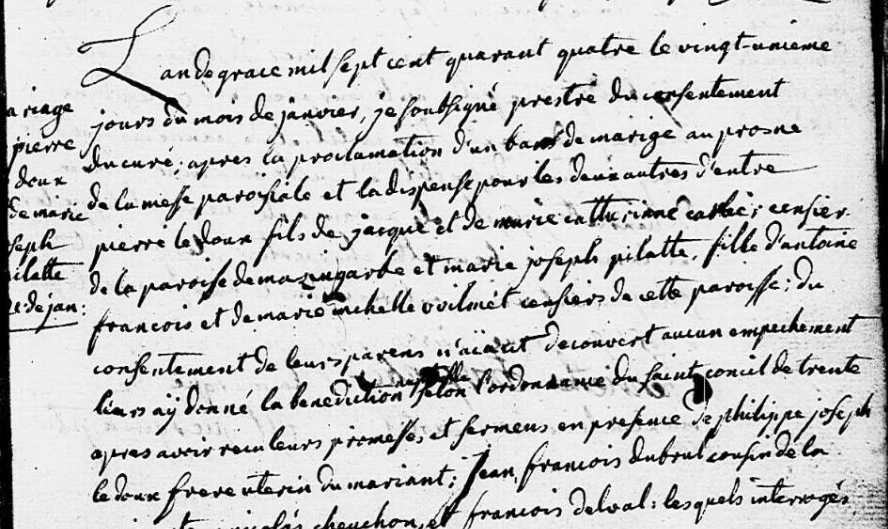 L'an de grace mil sept cent quarant quatre le vingt-unieme
jours du mois de janvier, je soubsigné prestre du consentement
du curé; apres la proclamation d'un bans de marige au prosne
de la messe paroissiale et la dispense pour les deux autres d'entre
pierre le doux fils de jacque et de marie catherinne censier
de la paroisse de mazingarbe et marie joseph pilatte, fille d'antoine
francois et de marie michelle vvilmet censiers de cette paroisse: du
consentement de leurs parens n'aiant decouvert aucun empechement
lieurs aÿ donné la benediction nuptialle selon l'ordonnance du saint concil de trente
apres avoir recu leurs promesses et sermens en presence de philippe joseph
le doux frere uterin du mariant; Jean francois dubrul cousin de la
nicolas cheuchon, et francois delval: lesquels interrogés
ariage
pierre
doux
de marie
seph
ilatte
de jan: